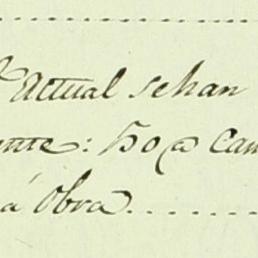 Actual se han
ente: 50 @ Can
a Obra